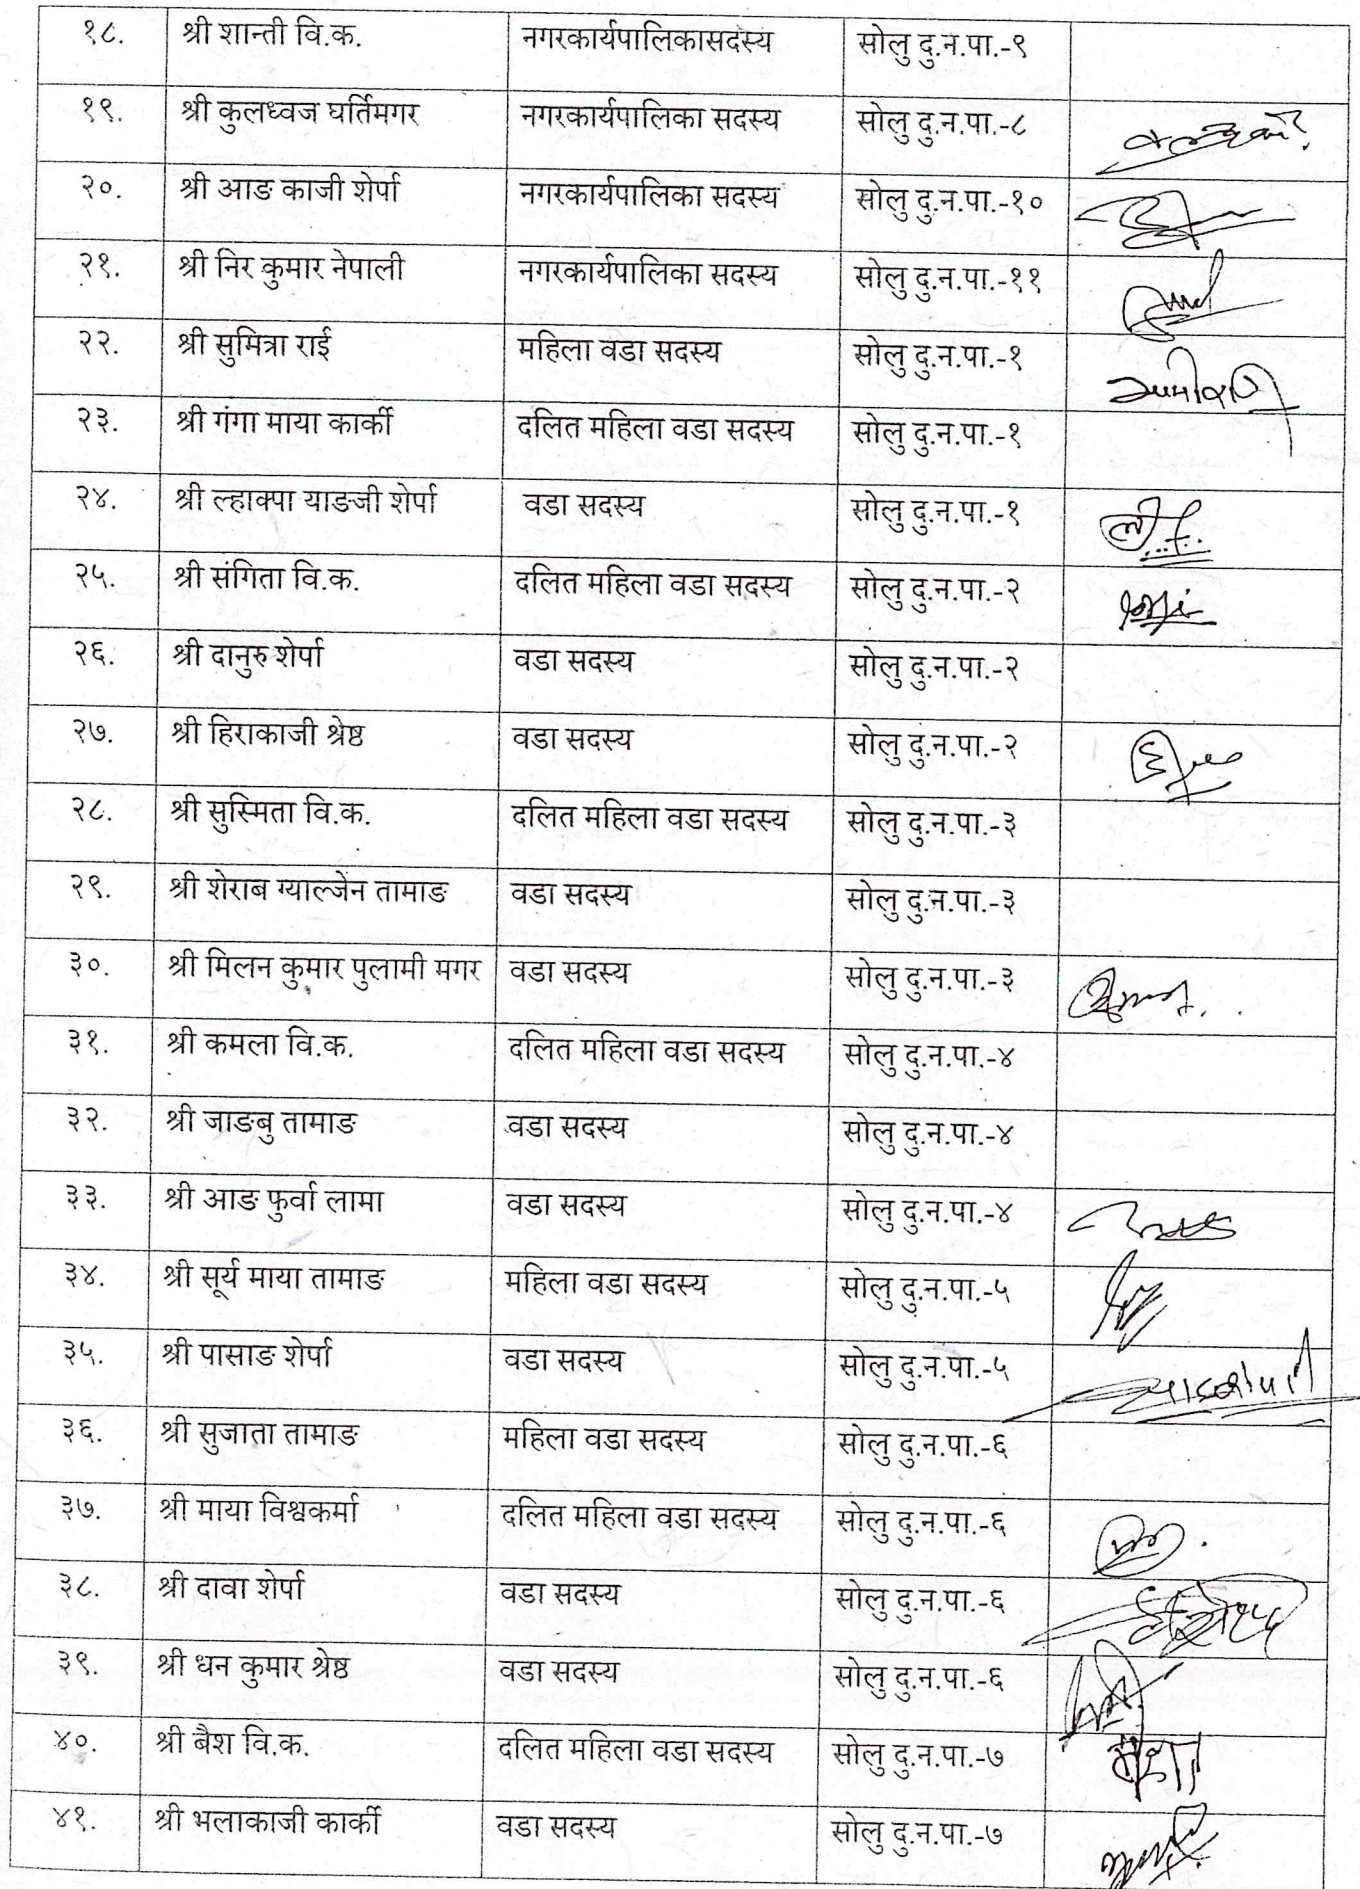 १८. श्री शान्ती वि.क. नगरकार्यपालिकासदस्य सोलु दु.न.पा.-९
१९. श्री कुलध्वज घर्तिमगर नगरकार्यपालिका सदस्य सोलु दु.न.पा.-८
२०. श्री आङ काजी शेर्पा नगरकार्यपालिका सदस्य सोलु दु.न.पा.-१०
२१. श्री निर कुमार नेपाली नगरकार्यपालिका सदस्य सोलु दु.न.पा.-११
२२. श्री सुमित्रा राई महिला वडा सदस्य सोलु दु.न.पा.-१
२३. श्री गंगा माया कार्की दलित महिला वडा सदस्य सोलु दु.न.पा.-१
२४. श्री ल्हाक्पा याङजी शेर्पा वडा सदस्य सोलु दु.न.पा.-१
२५. श्री संगिता वि.क. दलित महिला वडा सदस्य सोलु दु.न.पा.-२
२६. श्री दानुरु शेर्पा वडा सदस्य सोलु दु.न.पा.-२
२७. श्री हिराकाजी श्रेष्ठ वडा सदस्य सोलु दु.न.पा.-२
२८. श्री सुस्मिता वि.क. दलित महिला वडा सदस्य सोलु दु.न.पा.-३
२९. श्री शेराब ग्याल्जेन तामाङ वडा सदस्य सोलु दु.न.पा.-३
३०. श्री मिलन कुमार पुलामी मगर वडा सदस्य सोलु दु.न.पा.-३
३१. श्री कमला वि.क. दलित महिला वडा सदस्य सोलु दु.न.पा.-४
३२. श्री जाङबु तामाङ वडा सदस्य सोलु दु.न.पा.-४
३३. श्री आङ फुर्वा लामा वडा सदस्य सोलु दु.न.पा.-४
३४. श्री सूर्य माया तामाङ महिला वडा सदस्य सोलु दु.न.पा.-५
३५. श्री पासाङ शेर्पा वडा सदस्य सोलु दु.न.पा.-५
३६. श्री सुजाता तामाङ महिला वडा सदस्य सोलु दु.न.पा.-६
३७. श्री माया विश्वकर्मा दलित महिला वडा सदस्य सोलु दु.न.पा.-६
३८. श्री दावा शेर्पा वडा सदस्य सोलु दु.न.पा.-६
३९. श्री धन कुमार श्रेष्ठ वडा सदस्य सोलु दु.न.पा.-६
४०. श्री बैश वि.क. दलित महिला वडा सदस्य सोलु दु.न.पा.-७
४१. श्री भलाकाजी कार्की वडा सदस्य सोलु दु.न.पा.-७